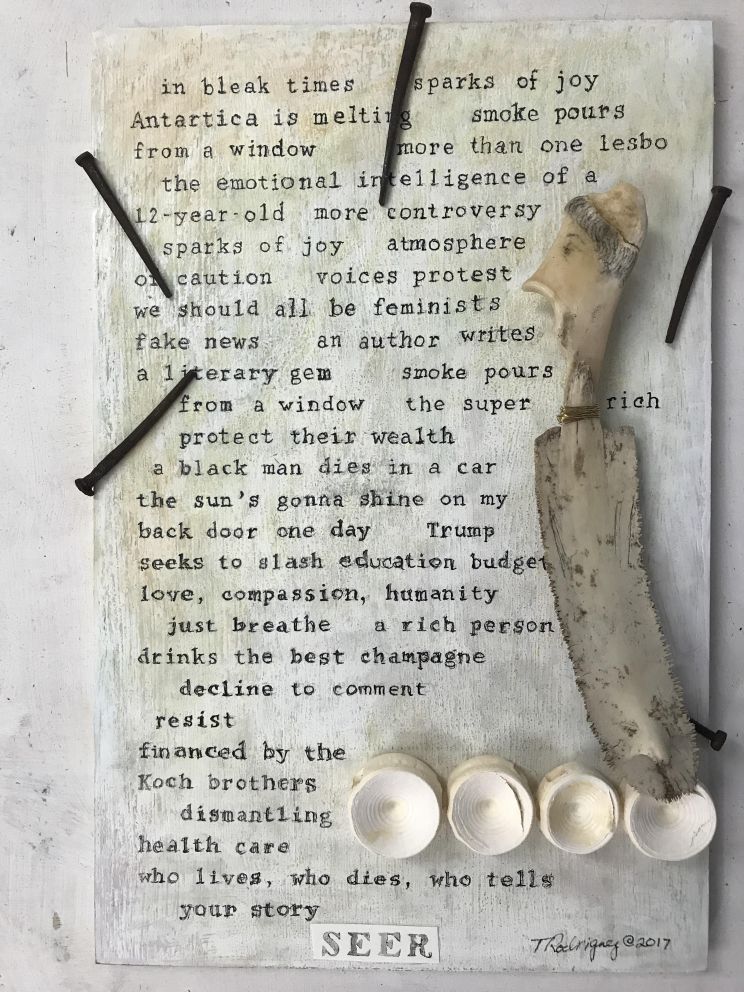 in bleak times sparks of joy
Antartica is melting smoke pours
from a window more than one lesbo
the emotional intelligence of a
12-year-old more controversy
sparks of joy atmosphere
of caution voices protest
we should all be feminists
fake news an author writes
a literary gem smoke pours
from a window the super rich
protect their wealth
a black man dies in a car
the sun's gonna shine on my
back door one day Trump
seeks to slash education budget
love, compassion, humanity
just breathe a rich person
drinks the best champagne
decline to comment
resist
financed by the
Koch brothers
dismantling
health care
who lives, who dies, who tells
your story
SEER
TRodriguez ©2017